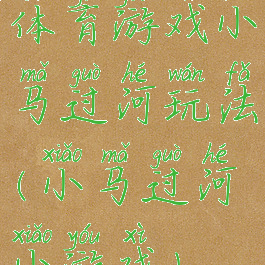 体育游戏小
mǎ guò hé wán fǎ
马过河玩法
xiǎo mǎ guò hé
(小马过河
xiǎo yóu xì
小游戏)